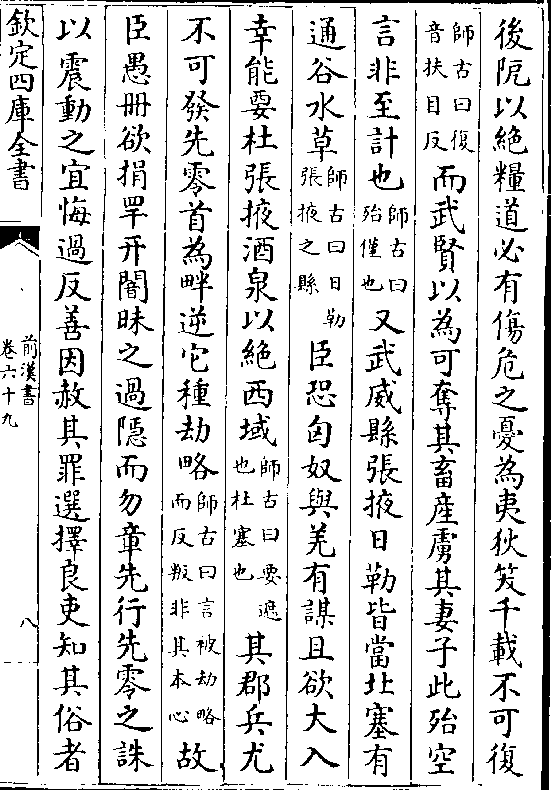 後阨以絶糧道必有傷危之憂為夷狄笑千載不可復
師古曰復音扶目反而武賢以為可奪其畜産虜其妻子此殆空
言非至計也師古曰殆僅也又武威縣張掖日勒皆當北塞有
通谷水草師古曰日勒張掖之縣臣恐匈奴與羌有謀且欲大入
幸能要杜張掖酒泉以絶西域師古曰要遮也杜塞也其郡兵尤
不可發先零首為畔逆它種劫略師古曰言被劫略而反叛非其本心故
臣愚冊欲捐罕开闇昧之過隱而勿章先行先零之誅
以震動之宜悔過反善因赦其罪選擇良吏知其俗者
欽定四庫全書
前漢書
卷六十九
八